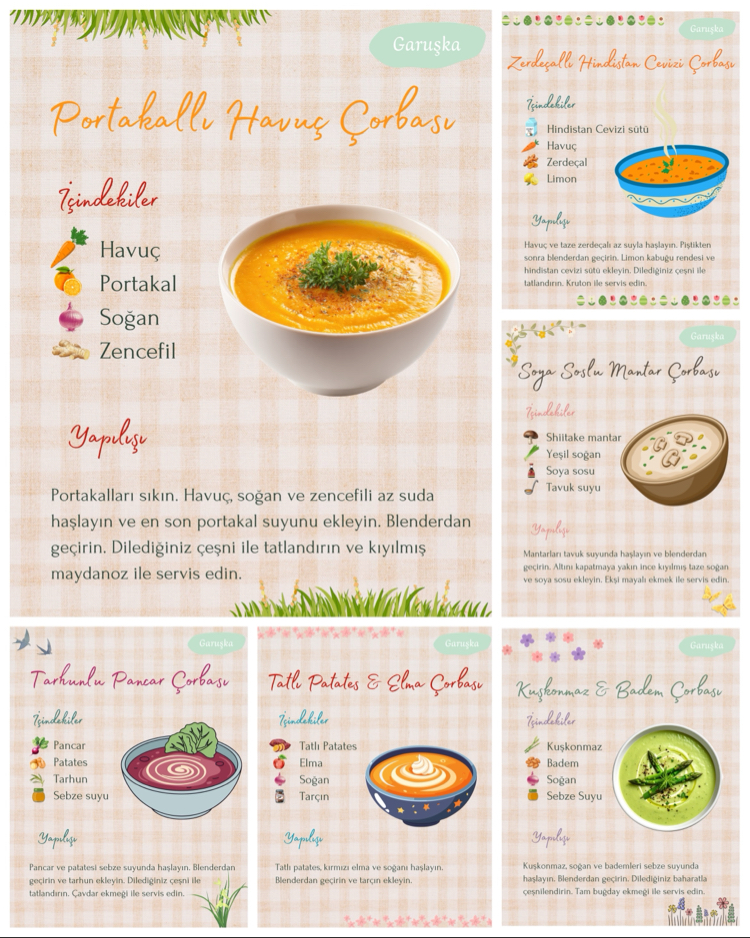 Garuşka
Portakallı Havuç Çorbası
İçindekiler
Havuç
Portakal
Soğan
Zencefil
Yapılışı
Portakalları sıkın. Havuç, soğan ve zencefili az suda
haşlayın ve en son portakal suyunu ekleyin. Blenderdan
geçirin. Dilediğiniz çeşni ile tatlandırın ve kıyılmış
maydanoz ile servis edin.
Garuşka
Zerdeçallı Hindistan Cevizi Çorbası
İçindekiler
Hindistan Cevizi sütü
Havuç
Zerdeçal
Limon
Yapılışı
Havuç ve taze zerdeçalı az suyla haşlayın. Piştikten
sonra blenderdan geçirin. Limon kabuğu rendesi ve
hindistan cevizi sütü ekleyin. Dilediğiniz çeşni ile
tatlandırın. Kruton ile servis edin.
Garuşka
Soya Soslu Mantar Çorbası
İçindekiler
Shiitake mantar
Yeşil soğan
Soya sosu
Tavuk suyu
Yapılışı
Mantarları tavuk suyunda haşlayın ve blenderdan
geçirin. Altını kapatmaya yakın ince kıyılmış taze soğan
ve soya sosu ekleyin. Ekşi mayalı ekmek ile servis edin.
Garuşka
Tarhunlu Pancar Çorbası
İçindekiler
Pancar
Patates
Tarhun
Sebze suyu
Yapılışı
Pancar ve patatesi sebze suyunda haşlayın. Blenderdan
geçirin ve tarhun ekleyin. Dilediğiniz çeşni ile
tatlandırın. Çavdar ekmeği ile servis edin.
Garuşka
Tatlı Patates & Elma Çorbası
İçindekiler
Tatlı Patates
Elma
Soğan
Tarçın
Yapılışı
Tatlı patates, kırmızı elma ve soğanı haşlayın.
Blenderdan geçirin ve tarçın ekleyin.
Garuşka
Kuşkonmaz & Badem Çorbası
İçindekiler
Kuşkonmaz
Badem
Soğan
Sebze Suyu
Yapılışı
Kuşkonmaz, soğan ve bademleri sebze suyunda
haşlayın. Blenderdan geçirin. Dilediğiniz baharatla
çeşnilendirin. Tam buğday ekmeği ile servis edin.